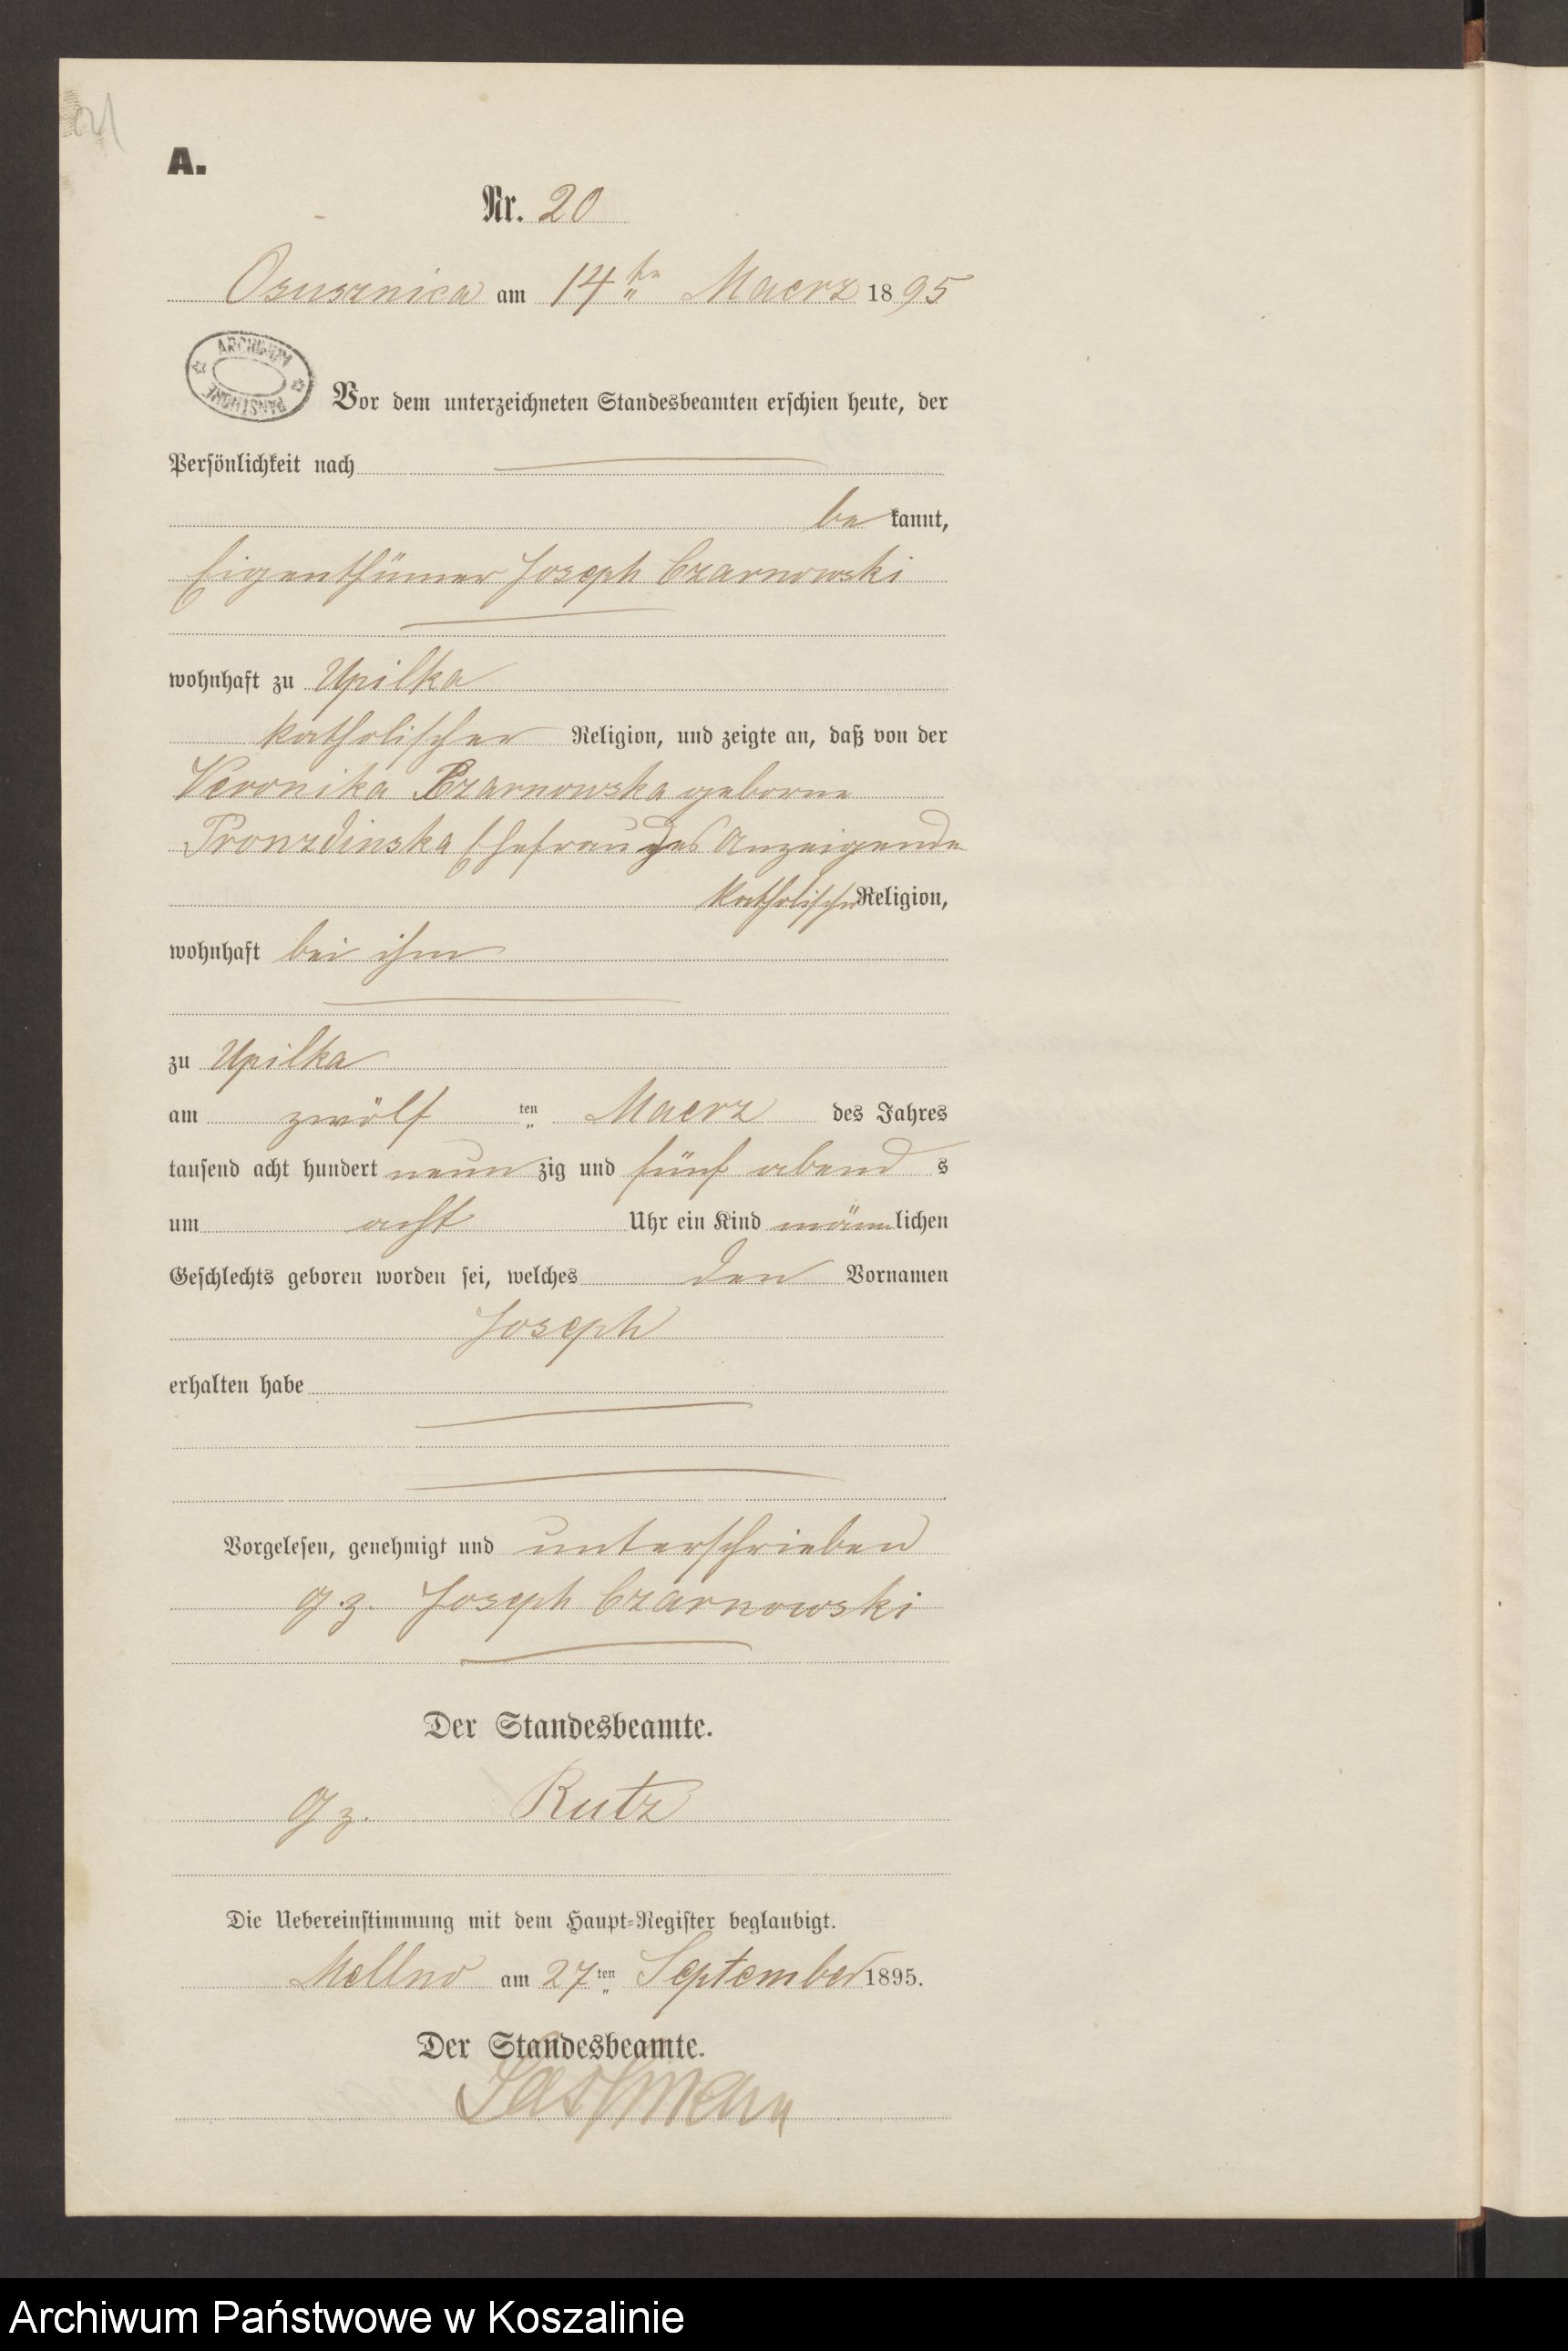 A.
Nr. 20
Osusznica am 14ten Maerz 1895
ARCHIWUM PAŃSTWOWE
Vor dem unterzeichneten Standesbeamten erschien heute, der
Persönlichkeit nach
be kannt,
Eigenthümer Joseph Czarnowski
wohnhaft zu Upilka
katholischer Religion, und zeigte an, daß von der
Veronika Czarnowska geborne
Pronzdinska Ehefrau des Anzeigende
katholischer Religion,
wohnhaft bei ihm
zu Upilka
am zwölf ten Maerz des Jahres
tausend acht hundert neun zig und fünf abend s
um acht Uhr ein Kind männlichen
Geschlechts geboren worden sei, welches den Vornamen
Joseph
erhalten habe
Vorgelesen, genehmigt und unterschrieben
gz. Joseph Czarnowski
Der Standesbeamte.
gz. Rutz
Die Uebereinstimmung mit dem Haupt-Register beglaubigt.
Mellno am 27ten September 1895.
Der Standesbeamte.
Archiwum Państwowe w Koszalinie